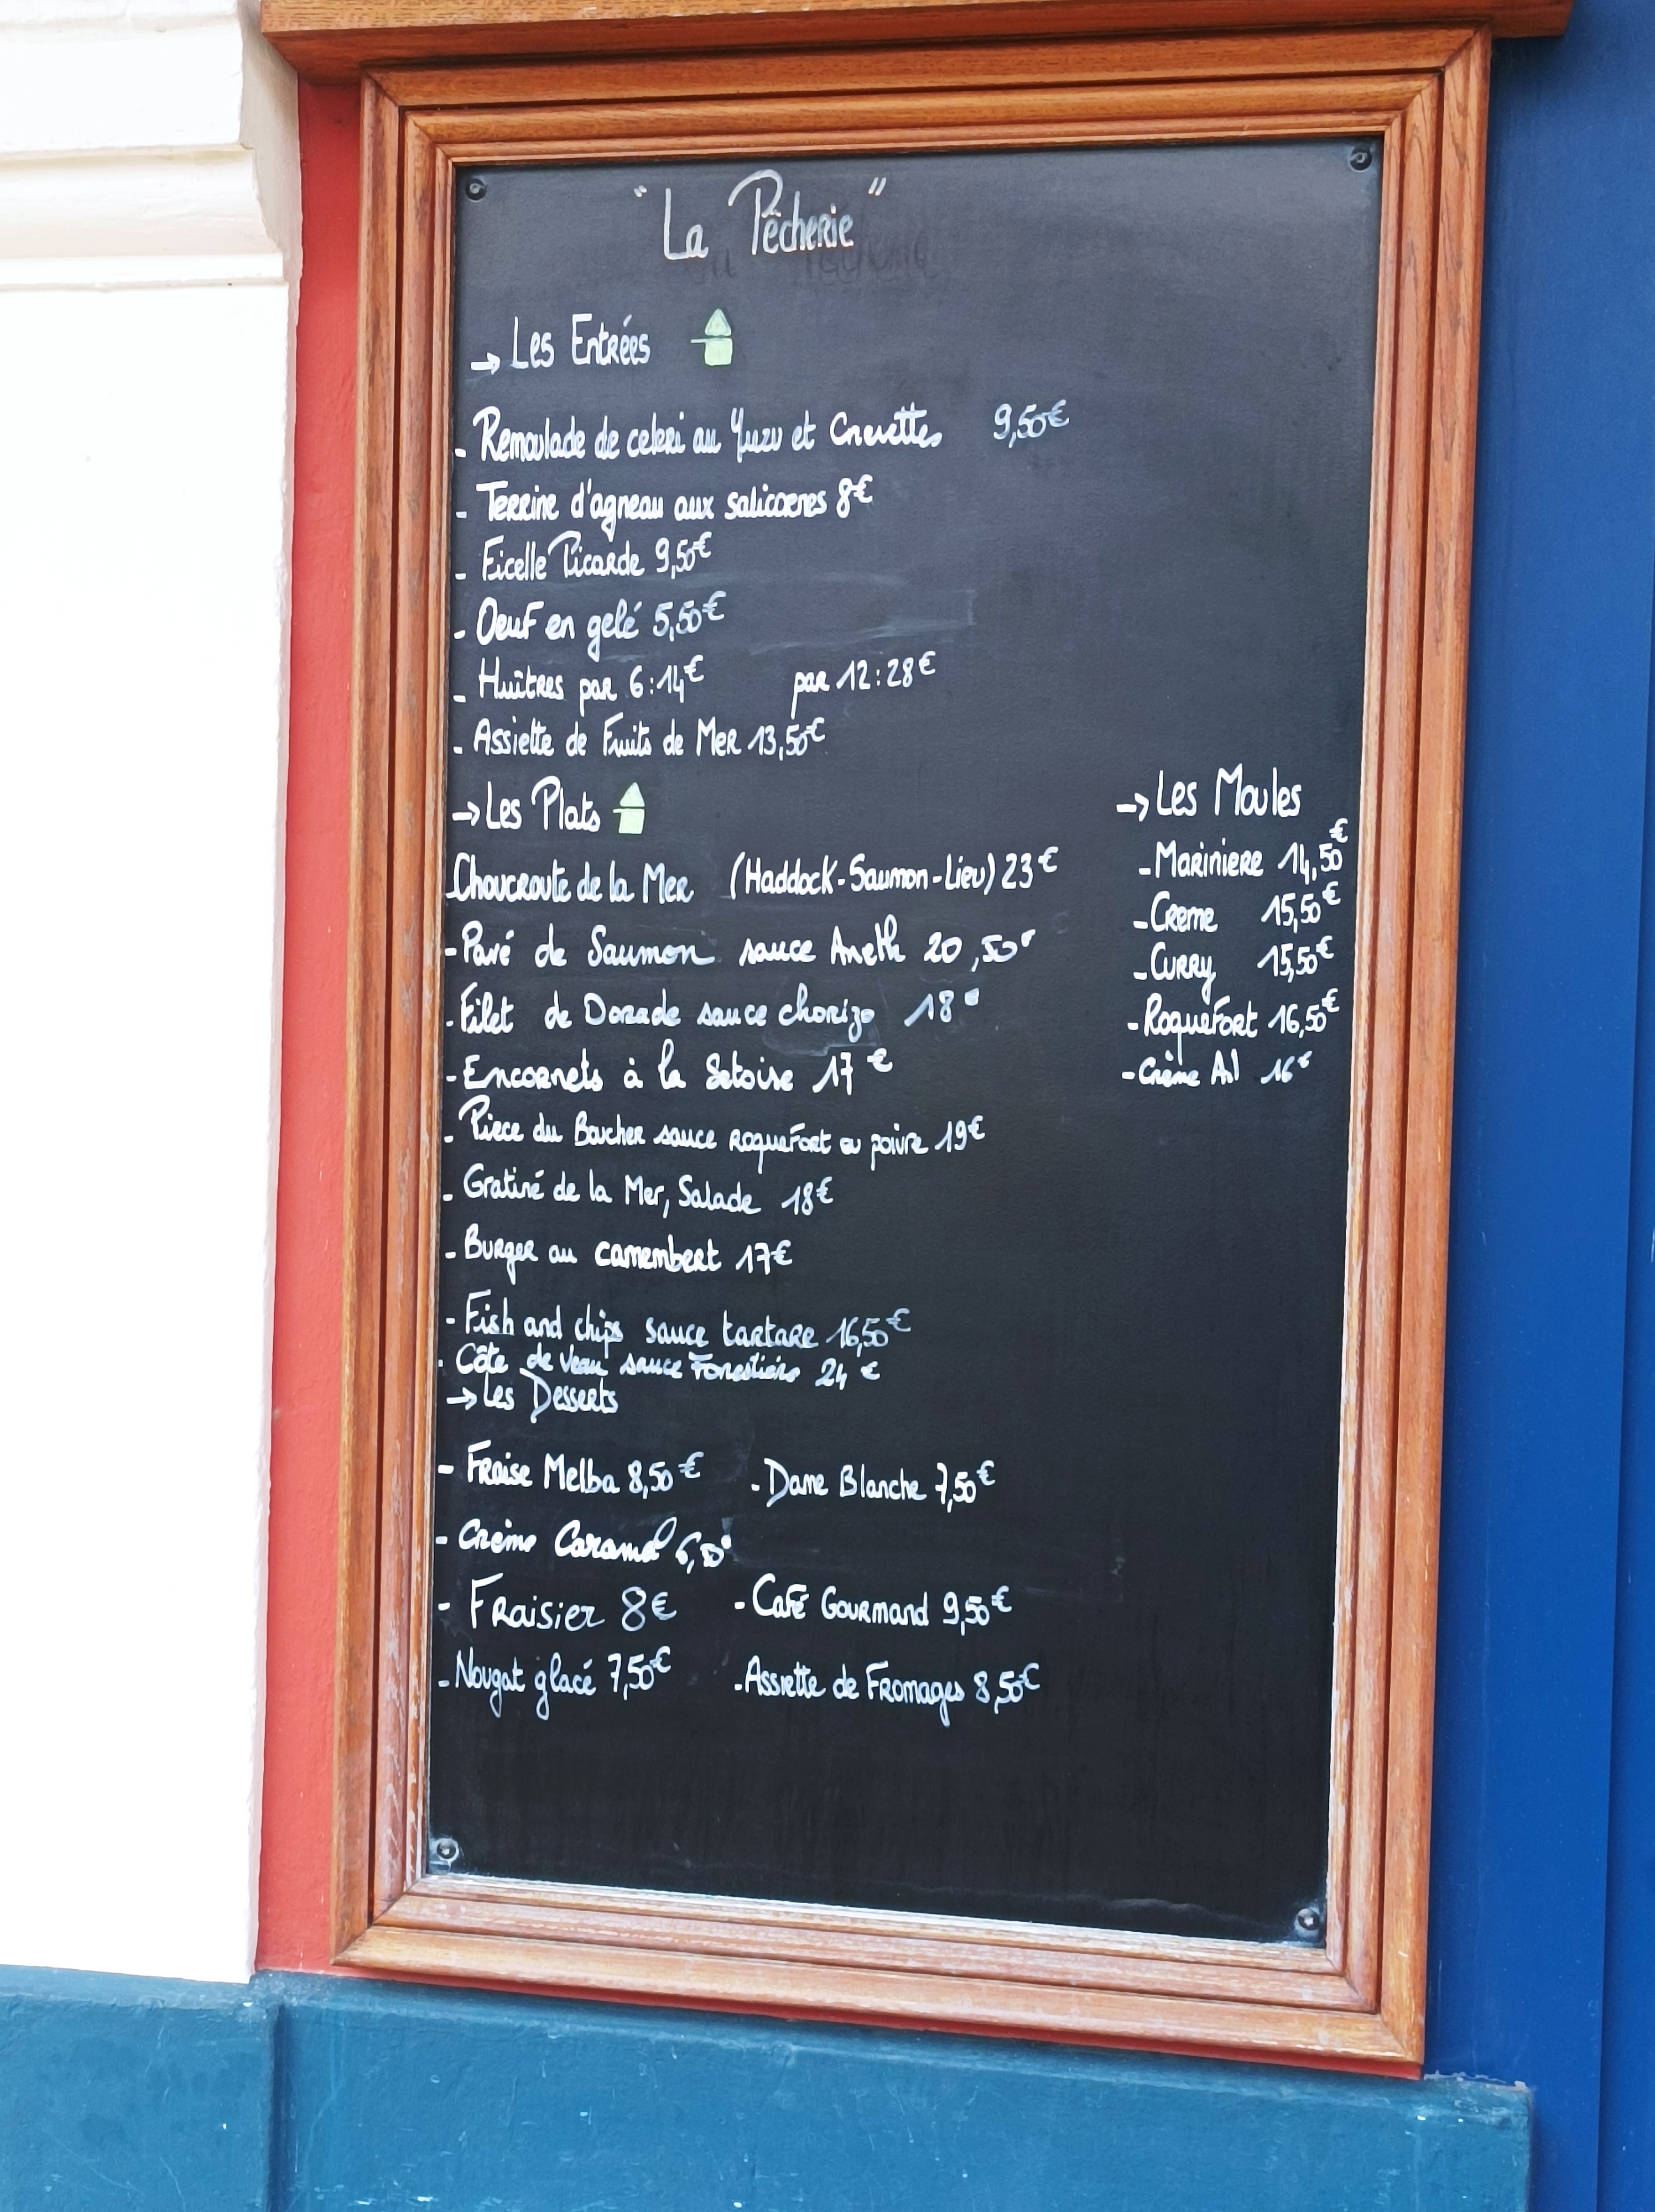 "La Pêcherie"
→ Les Entrées
- Remoulade de celeri au Yuzu et Crevettes 9,50€
- Terrine d'agneau aux salicornes 8€
- Ficelle Picarde 9,50€
- Oeuf en gelé 5,50€
- Huîtres par 6:14€ par 12:28€
- Assiette de Fruits de Mer 13,50€
→ Les Plats
- Choucroute de la Mer (Haddock-Saumon-Lieu) 23€
- Pavé de Saumon sauce Aneth 20,50€
- Filet de Dorade sauce chorizo 18€
- Encornets à la Setoise 17€
- Piece du Boucher sauce roquefort ou poivre 19€
- Gratiné de la Mer, Salade 18€
- Burger au camembert 17€
- Fish and chips sauce tartare 16,50€
- Côte de veau sauce Forestière 24€
→ Les Moules
- Mariniere 14,50€
- Creme 15,50€
- Curry 15,50€
- Roquefort 16,50€
- Crème Ail 16€
→ Les Desserts
- Fraise Melba 8,50€ - Dame Blanche 7,50€
- Crème Caramel 6,50€
- Fraisier 8€ - Café Gourmand 9,50€
- Nougat glacé 7,50€ - Assiette de Fromages 8,50€